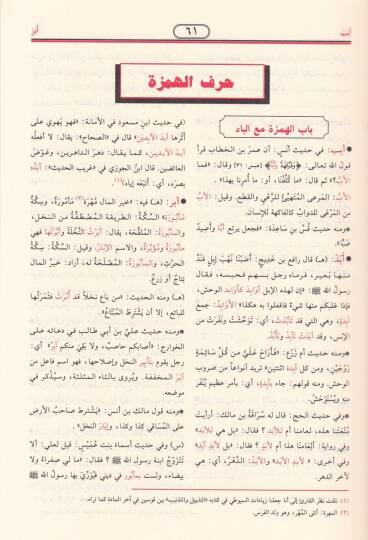 أبب
٦١
أبر
حرف الهمزة
باب الهمزة مع الباء
● أبب: في حديث أنس: أن عمر بن الخطاب قرأ
قول الله تعالى: ﴿وَفَاكِهَةً وَأَبًّا﴾ [عبس: ٣١] وقال: «فما
الأبّ؟» ثم قال: «ما كُلِّفْنا، أو: ما أُمِرنا بهذا».
الأبّ: المَرعى المُتهيّئ للرَّعْي والقطع، وقيل: الأبّ
من المَرْعى للدوابّ كالفاكهة للإنسان.
ومنه حديث قُسّ بن ساعدة: «فجعل يرتع أبًّا وأصيد
ضبًّا».
● أَبَدَ: (هـ) قال رافع بن خديج: أصَبْنا نَهْب إبلٍ فنَدَّ
منها بعير، فرماه رجل بسهم فحبسه، فقال
رسول الله ﷺ: «إن لهذه الإبل أوابدَ كأوابد الوحش،
فإذا غلبكم منها شيءٌ فافعلوا به هكذا» الأوَابدُ: جمع
آبِدة، وهي التي قد تأبَّدَت، أي: تَوَحَّشَت ونَفَرَت من
الإنس، وقد أبَدَت تأبِد وتأبُد.
ومنه حديث أم زَرْع: «فأرَاح عَلَيَّ من كُلّ سَائِمَةٍ
زَوْجَيْن، ومن كل آبِدَة اثنتين» تريد أنواعاً من ضروب
الوحش، ومنه قولهم: جاء بآبِدة، أي: بأمر عظيم يُنْفَر
مِنه ويُسْتَوْحَش.
وفي حديث الحج: قال له سُرَاقَة بن مالك: أرأيتَ
مُتْعَتَنا هذه، ألعامنا أم للأبد؟ فقال: «بل هي للأبد»
وفي رواية: ألِعَامنا هذا أم لأبَدٍ؟ فقال: «بل لأبَدِ أبَدٍ»
وفي أخرى: «لأبدِ الأبد» والأبَدُ: الدَّهْرُ، أي: هي
لآخر الدهر.
(في حديث ابن مسعود في الأمانة: «فهو يَهْوي على
أثَرها أبدَ الآبدين» قال في «الصحاح»: يقال: لا أفعلُه
أبدَ الآبدين، كما يقال: دهرَ الداهرين، وعَوْضَ
العائضين. قال ابن الجوزي في «غريب الحديث»:
بصرَه، أي: أتبَعَه إياه)(١).
● أَبَر: (هـ) فيه: «خير المال مُهْرَة(٢) مَأمُورَة، وسِكَّة
مَأبُورَة» السِّكَّة: الطريقة المُصْطَفَّة من النخل،
والمأبُورةُ: المُلَقَّحة، يقال: أبَرْتُ النَّخْلة وأبَّرْتُها فهي
مأبُورةٌ ومُؤَبَّرةٌ، والاسم الإبَارُ. وقيل: السِّكَّة: سِكة
الحرْث، والمَأبُورةُ: المُصْلَحة له، أراد: خيرُ المال
نِتاجٌ أو زرْعٌ.
(هـ) ومنه الحديث: «من باع نخلاً قد أُبِّرَتْ فثَمَرَتُها
للبائع، إلا أن يَشْتَرط المُبْتَاعُ».
ومنه حديث عليّ بن أبي طالب في دعائه على
الخوارج: «أصابكم حاصبٌ، ولا بقِيَ منكم آبِرٌ» أي:
رجل يقوم بتأبير النخل وإصلاحها، فهو اسم فاعل من
أبَرَ المخففة، ويُروى بالثاء المثلثة، وسيُذكر في
موضعه.
ومنه قول مالك بن أنس: «يَشْترط صاحبُ الأرض
على المُسَاقي كذا وكذا، وإبَارَ النخل».
(س) وفي حديث أسماء بنت عُمَيْس: قيل لعلي: ألا
تَتَزَوَّجُ ابنة رسول الله ﷺ؟ فقال: «ما لي صفراءُ ولا
بيضاء، ولست بمأبُور في ديني فيُوَرِّيَ بها رسول الله ﷺ
(١) نلفت نظر القارئ إلى أننا جعلنا زيادات السيوطي في كتابه «التذييل والتذنيب» بين قوسين في آخر المادة كما تراه.
(٢) المهرة: أنثى المُهْر، وهو ولد الفرس.